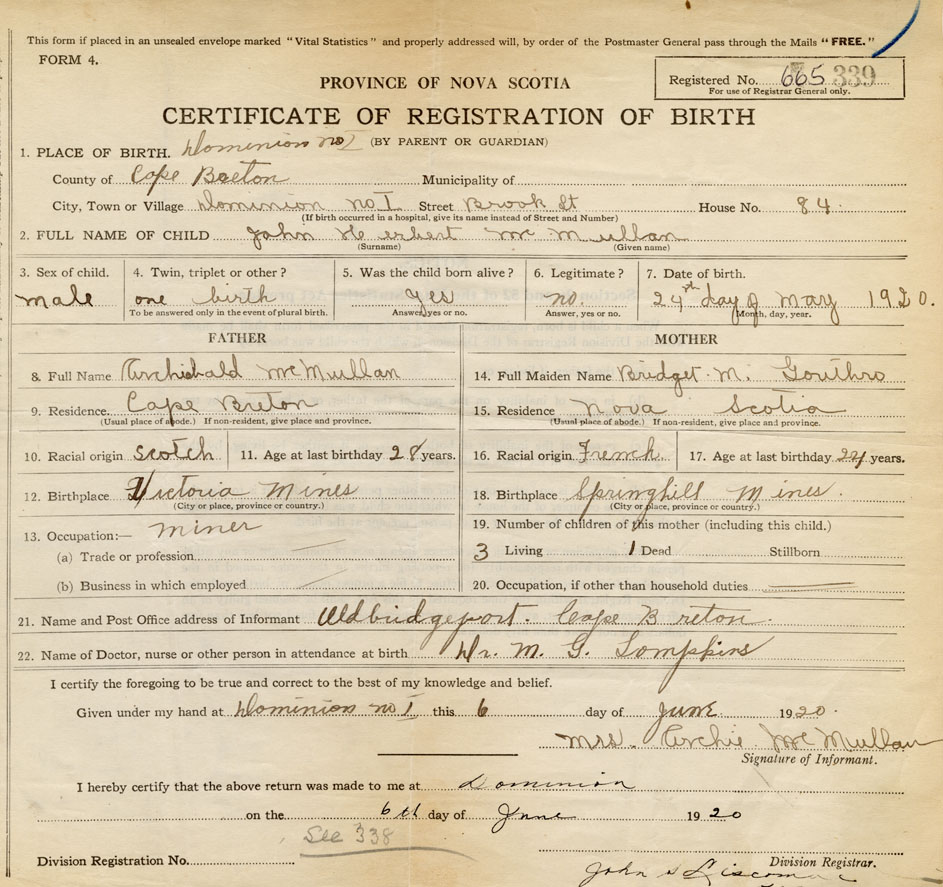 This form if placed in an unsealed envelope marked "Vital Statistics" and properly addressed will, by order of the Postmaster General pass through the Mails "FREE."
FORM 4.
PROVINCE OF NOVA SCOTIA
Registered No. 665 339
For use of Registrar General only.
CERTIFICATE OF REGISTRATION OF BIRTH
(BY PARENT OR GUARDIAN)
1. PLACE OF BIRTH. Dominion No I
County of Cape Breton Municipality of
City, Town or Village Dominion No I Street Brook St House No. 84.
(If birth occurred in a hospital, give its name instead of Street and Number)
2. FULL NAME OF CHILD John Herbert McMullan
(Surname) (Given name)
3. Sex of child. 4. Twin, triplet or other? 5. Was the child born alive? 6. Legitimate? 7. Date of birth.
male one birth yes no 24th day of May 1920.
To be answered only in the event of plural birth. Answer, yes or no. Answer, yes or no. Month, day, year.
FATHER MOTHER
8. Full Name Archibald McMullan 14. Full Maiden Name Bridget. M. Gouthro
9. Residence. Cape Breton 15. Residence Nova Scotia
(Usual place of abode.) If non-resident, give place and province. (Usual place of abode.) If non-resident, give place and province.
10. Racial origin scotch 11. Age at last birthday 28 years. 16. Racial origin French. 17. Age at last birthday 24 years.
12. Birthplace Victoria Mines 18. Birthplace Springhill Mines.
(City or place, province or country.) (City or place, province or country.)
13. Occupation:— miner 19. Number of children of this mother (including this child.)
(a) Trade or profession 3 Living 1 Dead Stillborn
(b) Business in which employed 20. Occupation, if other than household duties
21. Name and Post Office address of Informant Oldbridgeport. Cape Breton.
22. Name of Doctor, nurse or other person in attendance at birth Dr. M. G. Tompkins
I certify the foregoing to be true and correct to the best of my knowledge and belief.
Given under my hand at Dominion No I this 6 day of June 1920.
Mrs. Archie McMullan
Signature of Informant.
I hereby certify that the above return was made to me at Dominion
on the 6th day of June 1920
See 338
Division Registration No. Division Registrar.
John